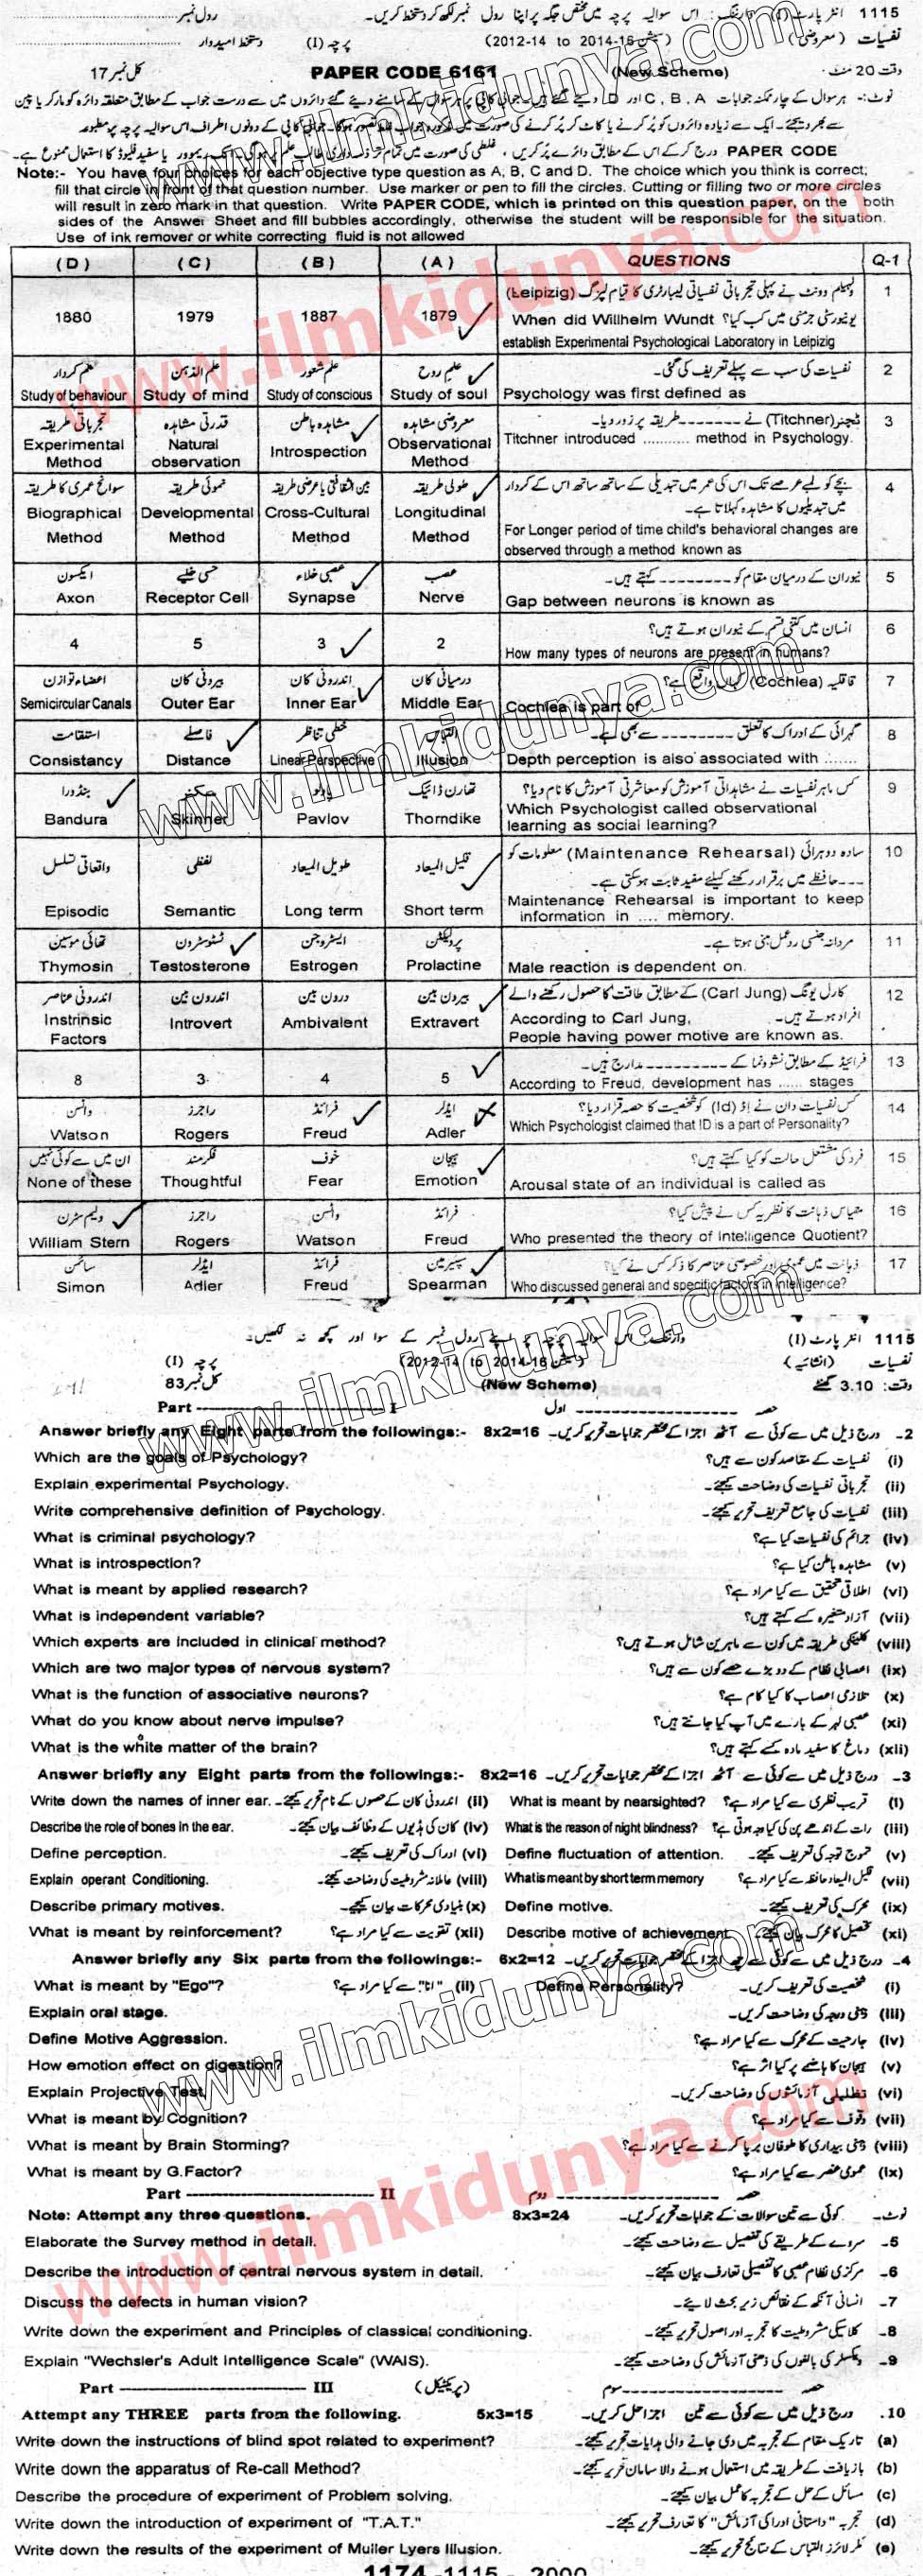 1115 انٹر پارٹ (I) وارننگ: اس سوالیہ پرچہ میں مختص جگہ پر اپنا رول نمبر لکھ کر دستخط کریں۔ رول نمبر
نفسیات (معروضی) (سیشن 2012-14 to 2014-16) پرچہ (I) دستخط امیدوار
وقت 20 منٹ (New Scheme) PAPER CODE 6161 کل نمبر 17
نوٹ:- ہر سوال کے چار ممکنہ جوابات A, B, C اور D دیئے گئے ہیں۔ جوابی کاپی پر ہر سوال کے سامنے دیئے گئے دائروں میں سے درست جواب کے مطابق متعلقہ دائرہ کو مارکر یا پین
سے بھر دیجئے۔ ایک سے زیادہ دائروں کو پُر کرنے یا کاٹ کر پُر کرنے کی صورت میں مذکورہ جواب غلط تصور ہوگا۔ جوابی کاپی کے دونوں اطراف اس سوالیہ پرچہ پر مطبوعہ
PAPER CODE درج کر کے اس کے مطابق دائرے پُر کریں، غلطی کی صورت میں تمام تر ذمہ داری طالب علم پر ہوگی۔ انک ریموور یا سفید فلیوڈ کا استعمال ممنوع ہے۔
Note:- You have four choices for each objective type question as A, B, C and D. The choice which you think is correct;
fill that circle in front of that question number. Use marker or pen to fill the circles. Cutting or filling two or more circles
will result in zero mark in that question. Write PAPER CODE, which is printed on this question paper, on the both
sides of the Answer Sheet and fill bubbles accordingly, otherwise the student will be responsible for the situation.
Use of ink remover or white correcting fluid is not allowed
(D) (C) (B) (A) QUESTIONS Q-1
ولہیلم وونٹ نے پہلی تجرباتی نفسیاتی لیبارٹری کا قیام لپزگ (Leipizig) 1
1880 1979 1887 1879 When did Willhelm Wundt یونیورسٹی جرمنی میں کب کیا؟
establish Experimental Psychological Laboratory in Leipizig
علم کردار علم الذہن علم شعور علم روح نفسیات کی سب سے پہلے تعریف کی گئی۔ 2
Study of behaviour Study of mind Study of conscious Study of soul Psychology was first defined as
تجرباتی طریقہ قدرتی مشاہدہ مشاہدہ باطن معروضی مشاہدہ ٹچنر (Titchner) نے -------- طریقہ پر زور دیا۔ 3
Experimental Method Natural observation Introspection Observational Method Titchner introduced ........... method in Psychology.
سوانح عمری کا طریقہ نموئی طریقہ بین الثقافتی یا عرضی طریقہ طولی طریقہ بچے کو لمبے عرصے تک اس کی عمر میں تبدیلی کے ساتھ ساتھ اس کے کردار 4
میں تبدیلیوں کا مشاہدہ کہلاتا ہے۔
Biographical Method Developmental Method Cross-Cultural Method Longitudinal Method For Longer period of time child's behavioral changes are
observed through a method known as
ایکسون حسی خلیے عصبی خلاء عصب نیوران کے درمیان مقام کو -------- کہتے ہیں۔ 5
Axon Receptor Cell Synapse Nerve Gap between neurons is known as
انسان میں کتنی قسم کے نیوران ہوتے ہیں؟ 6
4 5 3 2 How many types of neurons are present in humans?
اعضاء توازن بیرونی کان اندرونی کان درمیانی کان قاقلیہ (Cochlea) کہاں واقع ہے؟ 7
Semicircular Canals Outer Ear Inner Ear Middle Ear Cochlea is part of
استقامت فاصلے خطی تناظر التباس گہرائی کے ادراک کا تعلق -------- سے بھی ہے۔ 8
Consistancy Distance Linear Perspective Illusion Depth perception is also associated with .......
بنڈورا سکنر پاولو تھارن ڈائیک کس ماہر نفسیات نے مشاہداتی آموزش کو معاشرتی آموزش کا نام دیا؟ 9
Bandura Skinner Pavlov Thorndike Which Psychologist called observational
learning as social learning?
واقعاتی تسلسل لفظی طویل المیعاد قلیل المیعاد سادہ دوہرائی (Maintenance Rehearsal) معلومات کو 10
--- حافظے میں برقرار رکھنے کیلئے مفید ثابت ہوسکتی ہے۔
Episodic Semantic Long term Short term Maintenance Rehearsal is important to keep
information in .... memory.
تھائی موسین ٹسٹوسٹرون ایسٹروجن پرولیکٹن مردانہ جنسی ردعمل مبنی ہوتا ہے۔ 11
Thymosin Testosterone Estrogen Prolactine Male reaction is dependent on.
اندرونی عناصر اندرون بین درون بین بیرون بین کارل یونگ (Carl Jung) کے مطابق طاقت کا حصول رکھنے والے 12
افراد ہوتے ہیں۔ According to Carl Jung,
Instrinsic Factors Introvert Ambivalent Extravert People having power motive are known as.
فرائیڈ کے مطابق نشوونما کے ---------- مدارج ہیں۔ 13
8 3 4 5 According to Freud, development has ...... stages
واٹسن راجرز فرائڈ ایڈلر کس نفسیات دان نے اڈ (Id) کو شخصیت کا حصہ قرار دیا؟ 14
Watson Rogers Freud Adler Which Psychologist claimed that ID is a part of Personality?
ان میں سے کوئی نہیں فکرمند خوف ہیجان فرد کی مشتعل حالت کو کیا کہتے ہیں؟ 15
None of these Thoughtful Fear Emotion Arousal state of an individual is called as
ولیم سٹرن راجرز واٹسن فرائڈ مقیاس ذہانت کا نظریہ کس نے پیش کیا؟ 16
William Stern Rogers Watson Freud Who presented the theory of Intelligence Quotient?
سائمن ایڈلر فرائڈ سپیئرمین ذہانت میں عمومی اور خصوصی عناصر کا ذکر کس نے کیا؟ 17
Simon Adler Freud Spearman Who discussed general and specific factors in intelligence?
1115 انٹر پارٹ (I) وارننگ: اس سوالیہ پرچہ پر اپنے رول نمبر کے سوا اور کچھ نہ لکھیں۔
نفسیات (انشائیہ) (سیشن 2012-14 to 2014-16) پرچہ (I)
وقت: 3.10 گھنٹے (New Scheme) کل نمبر 83
Part -------------------------- I حصہ -------------------- اول
Answer briefly any Eight parts from the followings:- 8x2=16 2- درج ذیل میں سے کوئی سے آٹھ اجزا کے مختصر جوابات تحریر کریں۔
Which are the goals of Psychology? (i) نفسیات کے مقاصد کون سے ہیں؟
Explain experimental Psychology. (ii) تجرباتی نفسیات کی وضاحت کیجئے۔
Write comprehensive definition of Psychology. (iii) نفسیات کی جامع تعریف تحریر کیجئے۔
What is criminal psychology? (iv) جرائم کی نفسیات کیا ہے؟
What is introspection? (v) مشاہدہ باطن کیا ہے؟
What is meant by applied research? (vi) اطلاقی تحقیق سے کیا مراد ہے؟
What is independent variable? (vii) آزاد متغیرہ کسے کہتے ہیں؟
Which experts are included in clinical method? (viii) کلینکی طریقہ میں کون سے ماہرین شامل ہوتے ہیں؟
Which are two major types of nervous system? (ix) اعصابی نظام کے دو بڑے حصے کون سے ہیں؟
What is the function of associative neurons? (x) تلازمی اعصاب کا کیا کام ہے؟
What do you know about nerve impulse? (xi) عصبی لہر کے بارے میں آپ کیا جانتے ہیں؟
What is the white matter of the brain? (xii) دماغ کا سفید مادہ کسے کہتے ہیں؟
Answer briefly any Eight parts from the followings:- 8x2=16 3- درج ذیل میں سے کوئی سے آٹھ اجزا کے مختصر جوابات تحریر کریں۔
Write down the names of inner ear. (ii) اندرونی کان کے حصوں کے نام تحریر کیجئے۔ What is meant by nearsighted? (i) قریب نظری سے کیا مراد ہے؟
Describe the role of bones in the ear. (iv) کان کی ہڈیوں کے وظائف بیان کیجئے۔ What is the reason of night blindness? (iii) رات کے اندھے پن کی کیا وجہ ہوتی ہے؟
Define perception. (vi) ادراک کی تعریف کیجئے۔ Define fluctuation of attention. (v) تموج توجہ کی تعریف کیجئے۔
Explain operant Conditioning. (viii) عاملانہ مشروطیت کی وضاحت کیجئے۔ What is meant by short term memory (vii) قلیل المیعاد حافظہ سے کیا مراد ہے؟
Describe primary motives. (x) بنیادی محرکات بیان کیجئے۔ Define motive. (ix) محرک کی تعریف کیجئے۔
What is meant by reinforcement? (xii) تقویت سے کیا مراد ہے؟ Describe motive of achievement (xi) تحصیل کا محرک بیان کیجئے۔
Answer briefly any Six parts from the followings:- 6x2=12 4- درج ذیل میں سے کوئی سے چھ اجزا کے مختصر جوابات تحریر کریں۔
What is meant by "Ego"? (ii) "انا" سے کیا مراد ہے؟ Define Personality? (i) شخصیت کی تعریف کریں۔
Explain oral stage. (iii) دہنی درجہ کی وضاحت کریں۔
Define Motive Aggression. (iv) جارحیت کے محرک سے کیا مراد ہے؟
How emotion effect on digestion? (v) ہیجان کا ہاضمے پر کیا اثر ہے؟
Explain Projective Test. (vi) تظلیلی آزمائشوں کی وضاحت کریں۔
What is meant by Cognition? (vii) وقوف سے کیا مراد ہے؟
What is meant by Brain Storming? (viii) ذہنی بیداری کا طوفان برپا کرنے سے کیا مراد ہے؟
What is meant by G.Factor? (ix) عمومی عنصر سے کیا مراد ہے؟
Part -------------------------- II حصہ -------------------- دوم
Note: Attempt any three questions. 8x3=24 نوٹ۔ کوئی سے تین سوالات کے جوابات تحریر کریں۔
Elaborate the Survey method in detail. 5- سروے کے طریقے کی تفصیل سے وضاحت کیجئے۔
Describe the introduction of central nervous system in detail. 6- مرکزی نظام عصبی کا تفصیلی تعارف بیان کیجئے۔
Discuss the defects in human vision? 7- انسانی آنکھ کے نقائص زیر بحث لایئے۔
Write down the experiment and Principles of classical conditioning. 8- کلاسیکی مشروطیت کا تجربہ اور اصول تحریر کیجئے۔
Explain "Wechsler's Adult Intelligence Scale" (WAIS). 9- ویکسلر کی بالغوں کی ذہنی آزمائش کی وضاحت کیجئے۔
Part -------------------------- III (پریکٹیکل) حصہ -------------------- سوم
Attempt any THREE parts from the following. 5x3=15 10. درج ذیل میں سے کوئی سے تین اجزا حل کریں۔
Write down the instructions of blind spot related to experiment? (a) تاریک مقام کے تجربہ میں دی جانے والی ہدایات تحریر کیجئے۔
Write down the apparatus of Re-call Method? (b) بازیافت کے طریقہ میں استعمال ہونے والا سامان تحریر کیجئے۔
Describe the procedure of experiment of Problem solving. (c) مسائل کے حل کے تجربہ کا عمل بیان کیجئے۔
Write down the introduction of experiment of "T.A.T." (d) تجربہ "داستانی ادراکی آزمائش" کا تعارف تحریر کیجئے۔
Write down the results of the experiment of Muller Lyers Illusion. (e) ملر لائرز التباس کے نتائج تحریر کیجئے۔
1174 -1115 - 2000
www.ilmkidunya.com
www.ilmkidunya.com
www.ilmkidunya.com
www.ilmkidunya.com
www.ilmkidunya.com
www.ilmkidunya.com